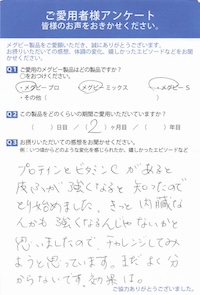 ご愛用者様アンケート
皆様のお声をおきかせください。
メグビー製品をご愛飲いただき、誠にありがとうございます。
お摂りいただいての感想、体調の変化、嬉しかったエピソードなどをお聞かせください。
Q1 ご愛用のメグビー製品はどの製品ですか?
○をおつけください。
・メグビープロ ・メグビーミックス ・メグビーS
・その他( )
Q2 この製品をどのくらいの期間ご愛用いただいていますか?
( )日目 / (2)ヶ月目 / ( )年目
Q3 お摂りいただいての感想をお聞かせください。
プロテインとビタミンCがあると
皮ふが強くなると知ったので
とり始めました。きっと内蔵な
んかも強くなるんじゃないかと
思いましたので、チャレンジしてみ
ようと思っています。まだよく分
からないです、効果は。
ご協力ありがとうございました。